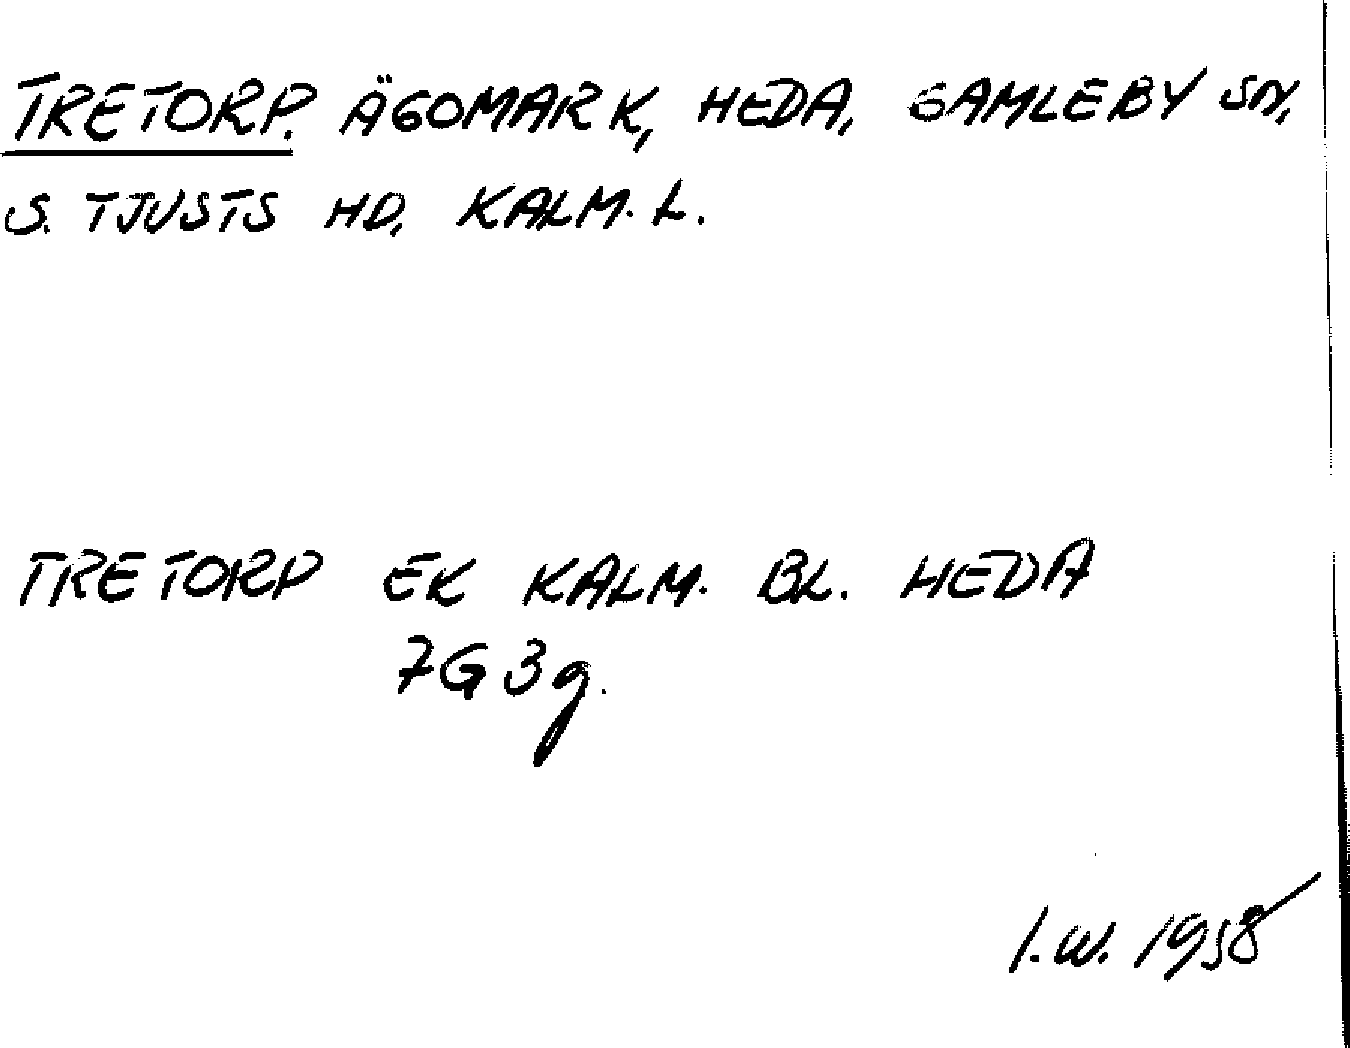 TRETORP. ÄGOMARK, HEDA, GAMLEBY SN,
S. TJUSTS HD, KALM. L.
TRETORP EK KALM. BL. HEDA
7G3g.
I.W. 1958